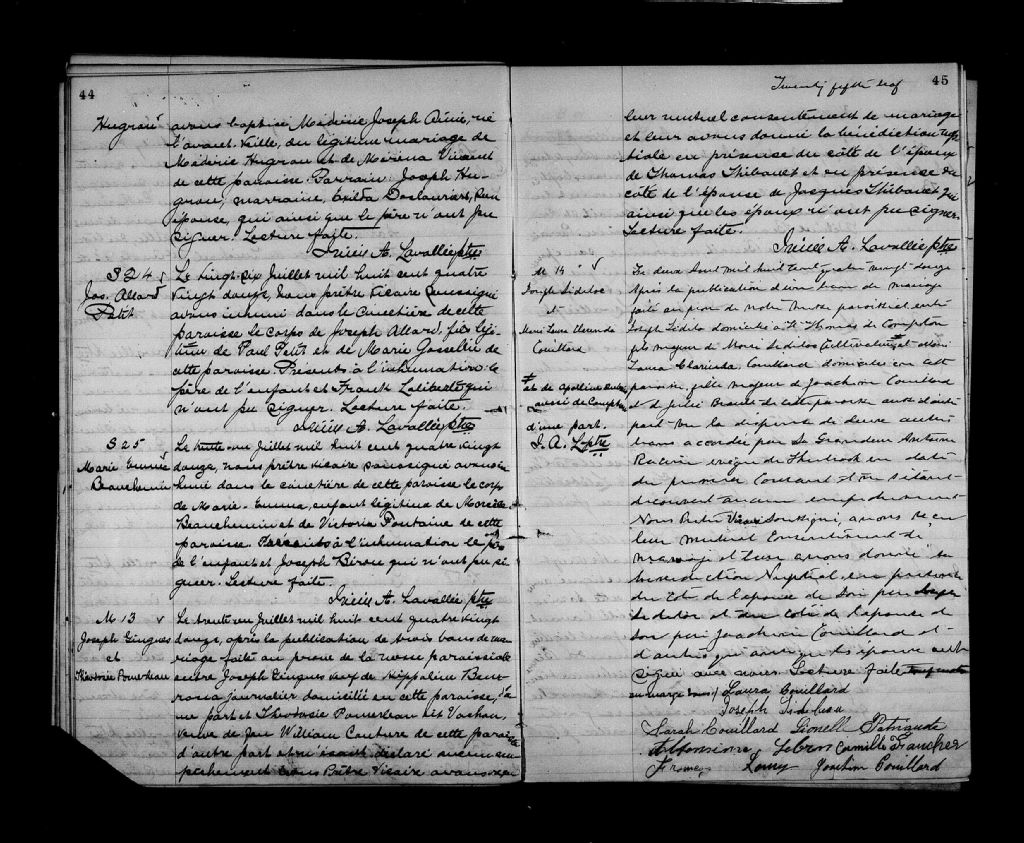 44
Hugron
avons baptisé Médérise Joseph né
l'avant-veille, du légitime mariage de
Médéric Hugron et de Mérina Vincent
de cette paroisse. Parrain: Joseph Hu-
gron, marraine, Exilda Deslauriers, son
épouse, qui ainsi que le père n'ont pu
signer. Lecture faite.
A. Lavallée ptre
S 24
Jos. Allard
Petit
Le vingt-six Juillet mil huit cent quatre
vingt douze, nous prêtre vicaire soussigné
avons inhumé dans le cimetière de cette
paroisse le corps de Joseph Allard, fils légi-
time de Paul Petit et de Marie Gosselin de
cette paroisse. Présents à l'inhumation: le
père de l'enfant et Frank Laliberté qui
n'ont pu signer. Lecture faite.
A. Lavallée ptre
S 25
Marie Emma
Beauchemin
Le trente-un Juillet mil huit cent quatre vingt
douze, nous prêtre vicaire soussigné avons in-
humé dans le cimetière de cette paroisse le corps
de Marie-Emma, enfant légitime de
Beauchemin et de Victoria Fontaine de cette
paroisse. Présents à l'inhumation le père
de l'enfant et Joseph Biron qui n'ont pu si-
gner. Lecture faite.
A. Lavallée ptre
M 13
Joseph Gingues
et
Théodosie Pomerleau
Le trente-un Juillet mil huit cent quatre vingt
douze, après la publication de trois bans de ma-
riage faite au prône de la messe paroissiale
entre Joseph Gingues veuf de Hippoline
journalier domicilié en cette paroisse, d'u-
ne part et Théodosie Pomerleau dit Vachon,
veuve de Jean William Couture de cette paroisse
d'autre part et n'ayant déclaré aucun em-
pêchement nous Prêtre Vicaire avons reçu
45
Twenty fifth leaf
leur mutuel consentement de mariage
et leur avons donné la bénédiction nup-
tiale en présence du côté de l'époux
de Thomas Thibault et en présence du
côté de l'épouse de Jacques Thibault qui
ainsi que les époux n'ont pu signer.
Lecture faite.
A. Lavallée ptre
M 14
Joseph
et
Marie Laura
Couillard
et de Apolline
aussi de Compton
d'une part.
J. A. L. ptre
Le deux Aout mil huit cent quatre vingt douze
après la publication d'un ban de mariage
faite au prône de notre messe paroissiale entre
Joseph domicilié à St Thomas de Compton
fils majeur de cultivateur et
Laura Clarinda Couillard domiciliée en cette
paroisse, fille majeure de Joachim Couillard
et de Julie de cette paroisse d'autre
part. Vu la dispense de deux autres
bans accordée par Sa Grandeur Antoine
Racine évêque de Sherbrooke en date
du premier Courant et ne s'étant
découvert aucun empêchement
Nous Prêtre Vicaire Soussigné, avons reçu
leur mutuel Consentement de
mariage et leur avons donné la
bénédiction Nuptiale, en présence
du côté de l'époux de Son père
et du côté de l'épouse de
Son père Joachim Couillard et
d'autres qui ainsi que les époux ont
signé avec nous. Lecture faite
Laura Couillard
Joseph
Sarah Couillard Lionell
Alfonsione Camille Faucher
Joachim Couillard